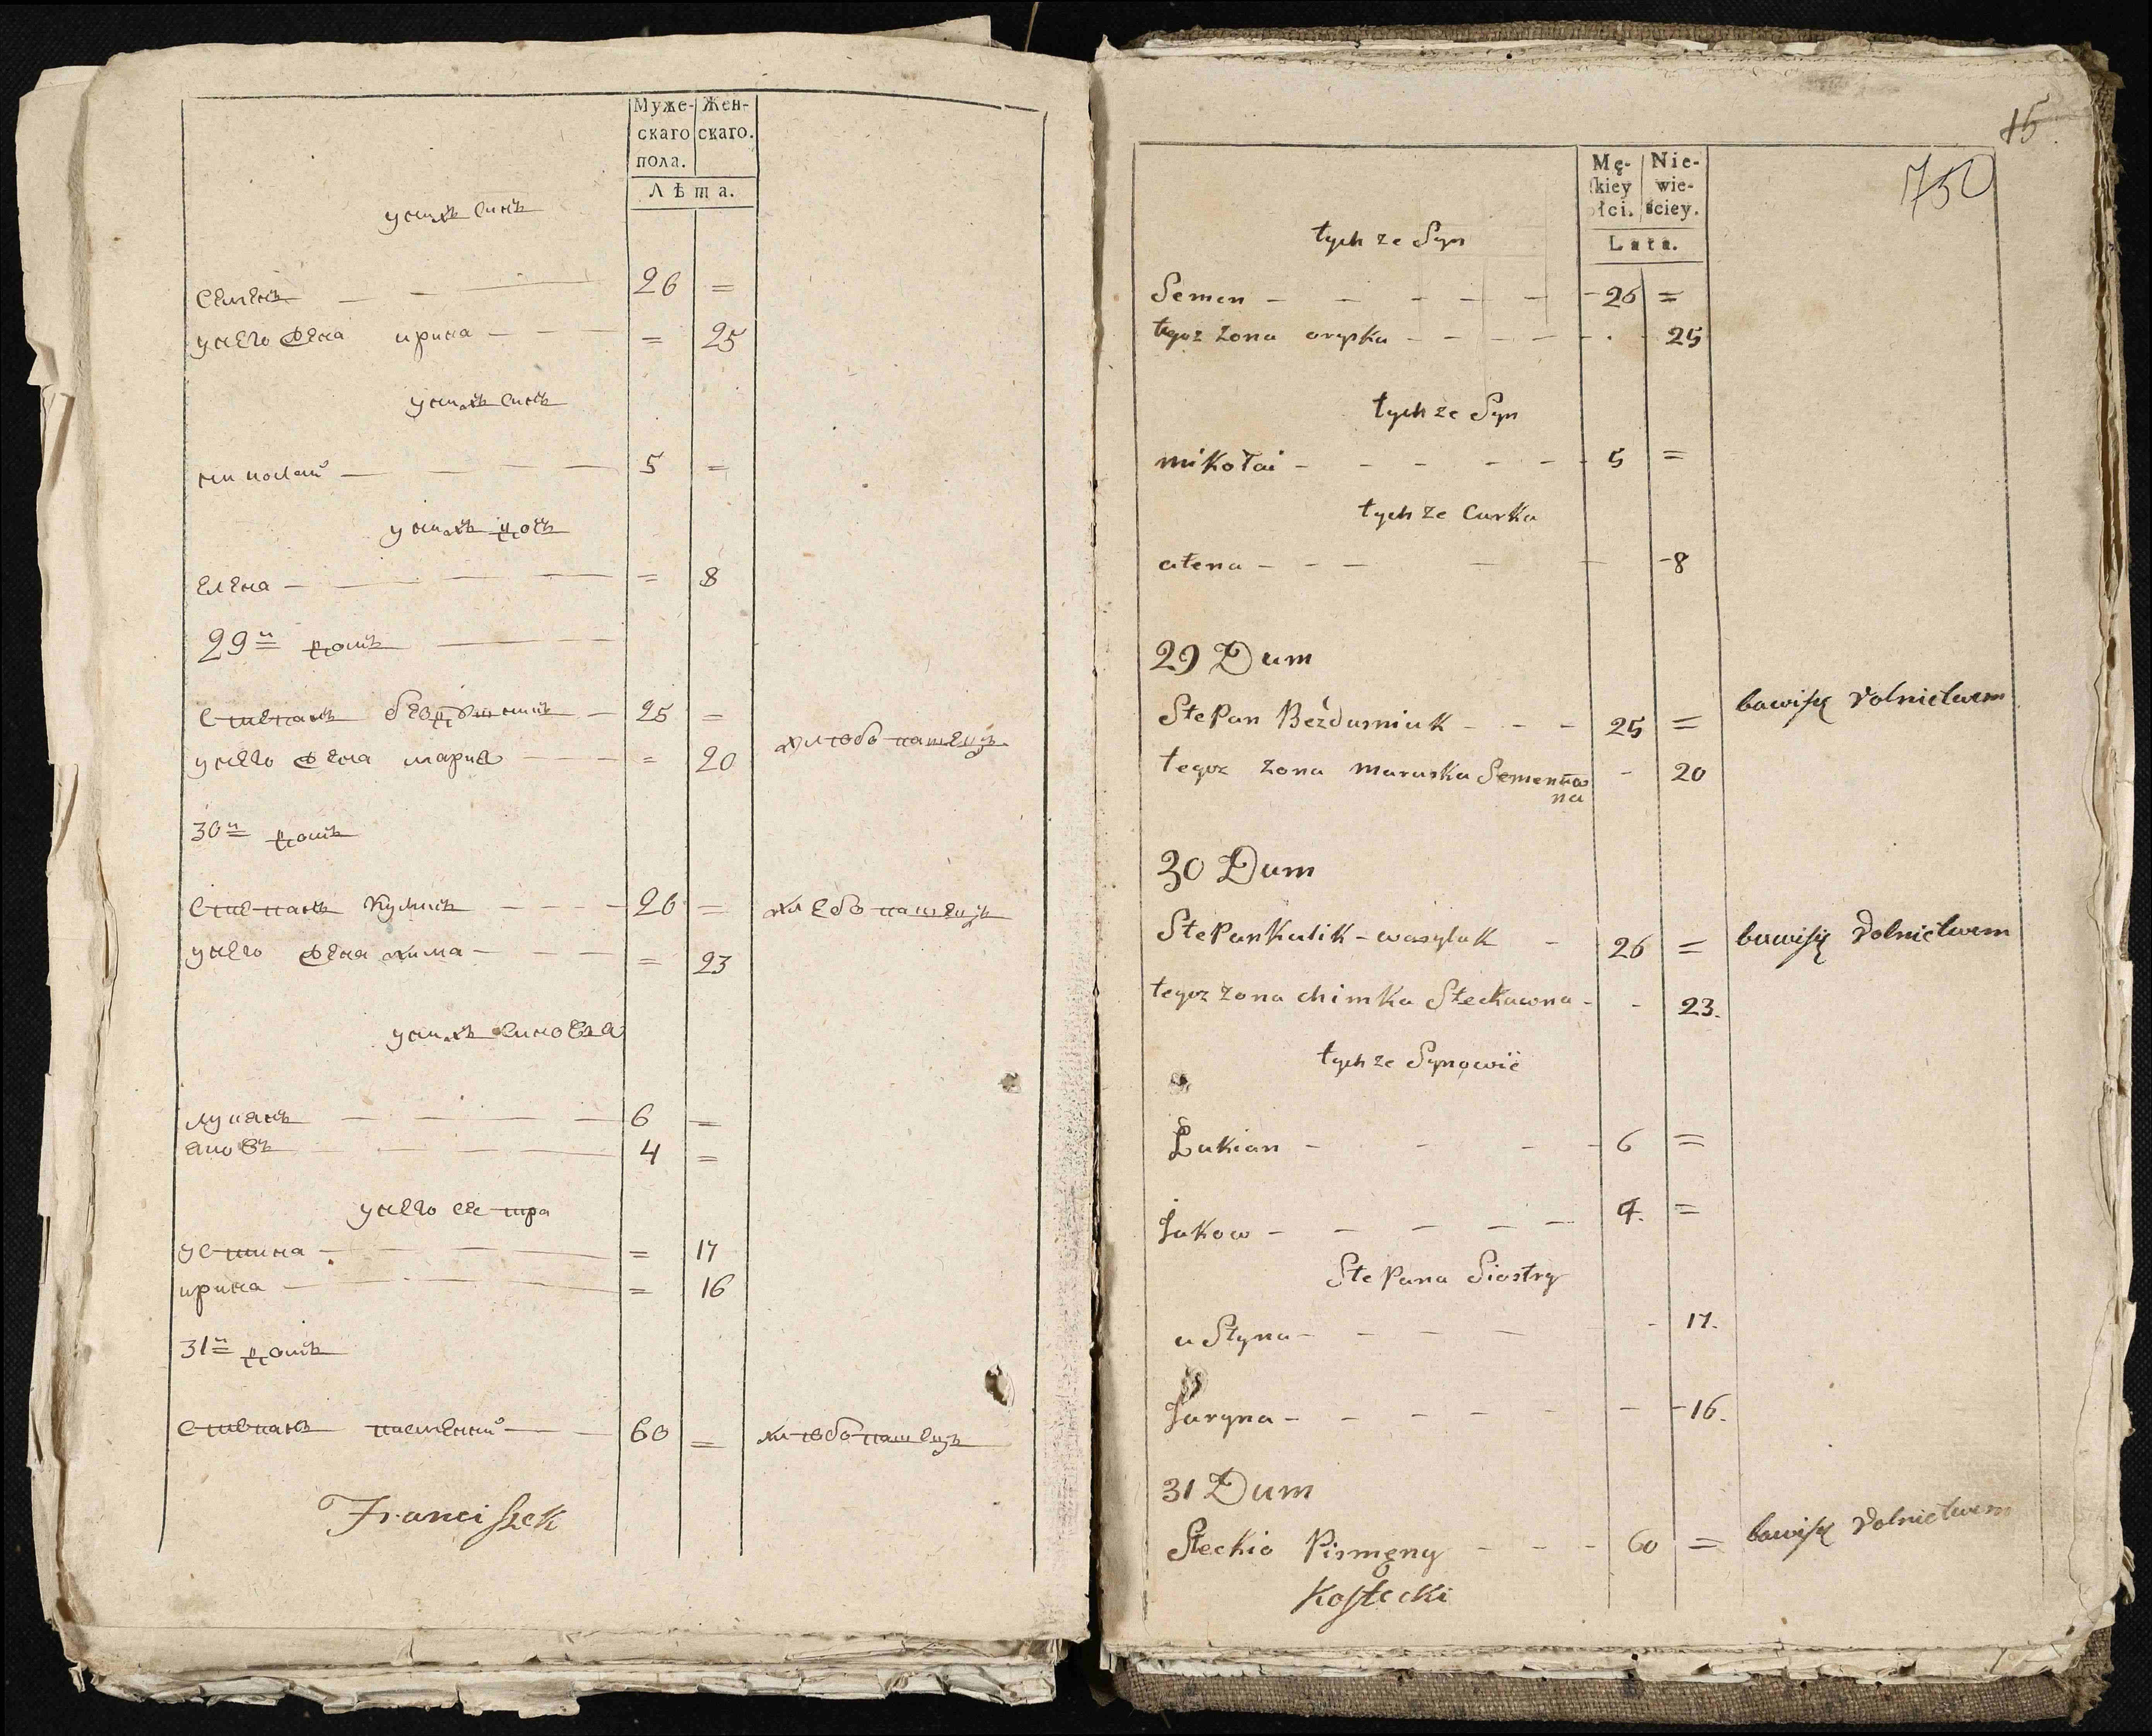 Муже- Жен-
скаго скаго.
пола.
Лѣта.
унихъ синъ
семенъ — — — 26 =
унего жена ирина — — — = 25
унихъ синъ
николай — — — — 5 =
унихъ дочъ
елена — — — — = 8
29й домъ — — —
степанъ — 25 = хлебопашецъ
унего жена мария — — — = 20
30й домъ
степанъ куликъ — — — 26 = хлебопашецъ
унего жена хима — — — = 23
унихъ синовья
лукянъ — — — — 6 =
яковъ — — — — 4 =
унего сестра
устина — — — — = 17
ирина — — — — = 16
31й домъ
степанъ писменний — — 60 = хлебопашецъ
Franciszek
15
750
Mę- Nie-
skiey wie-
płci. sciey.
Lata.
tychze Syn
Semen — — — — — 26 =
tegoz zona orypka — — — — 25
tychze Syn
mikołai — — — — — 5 =
tychze Curka
ałena — — — — — 8
29 Dum
Stepan Bezdumiuk — — — 25 = bawisię rolnictwem
tegoz zona maruska Semenowna — 20
30 Dum
Stepan Kulik - wasyluk — 26 = bawisię rolnictwem
tegoz zona chimka Steckowna — — 23.
tychze Synowie
Łukian — — — — 6 =
Jakow — — — — — 4. =
Stepana Siostry
uStyna — — — — — 17.
Jaryna — — — — — — 16.
31 Dum
Steckio Pismęny — — — 60 = bawisię rolnictwem
Kostecki